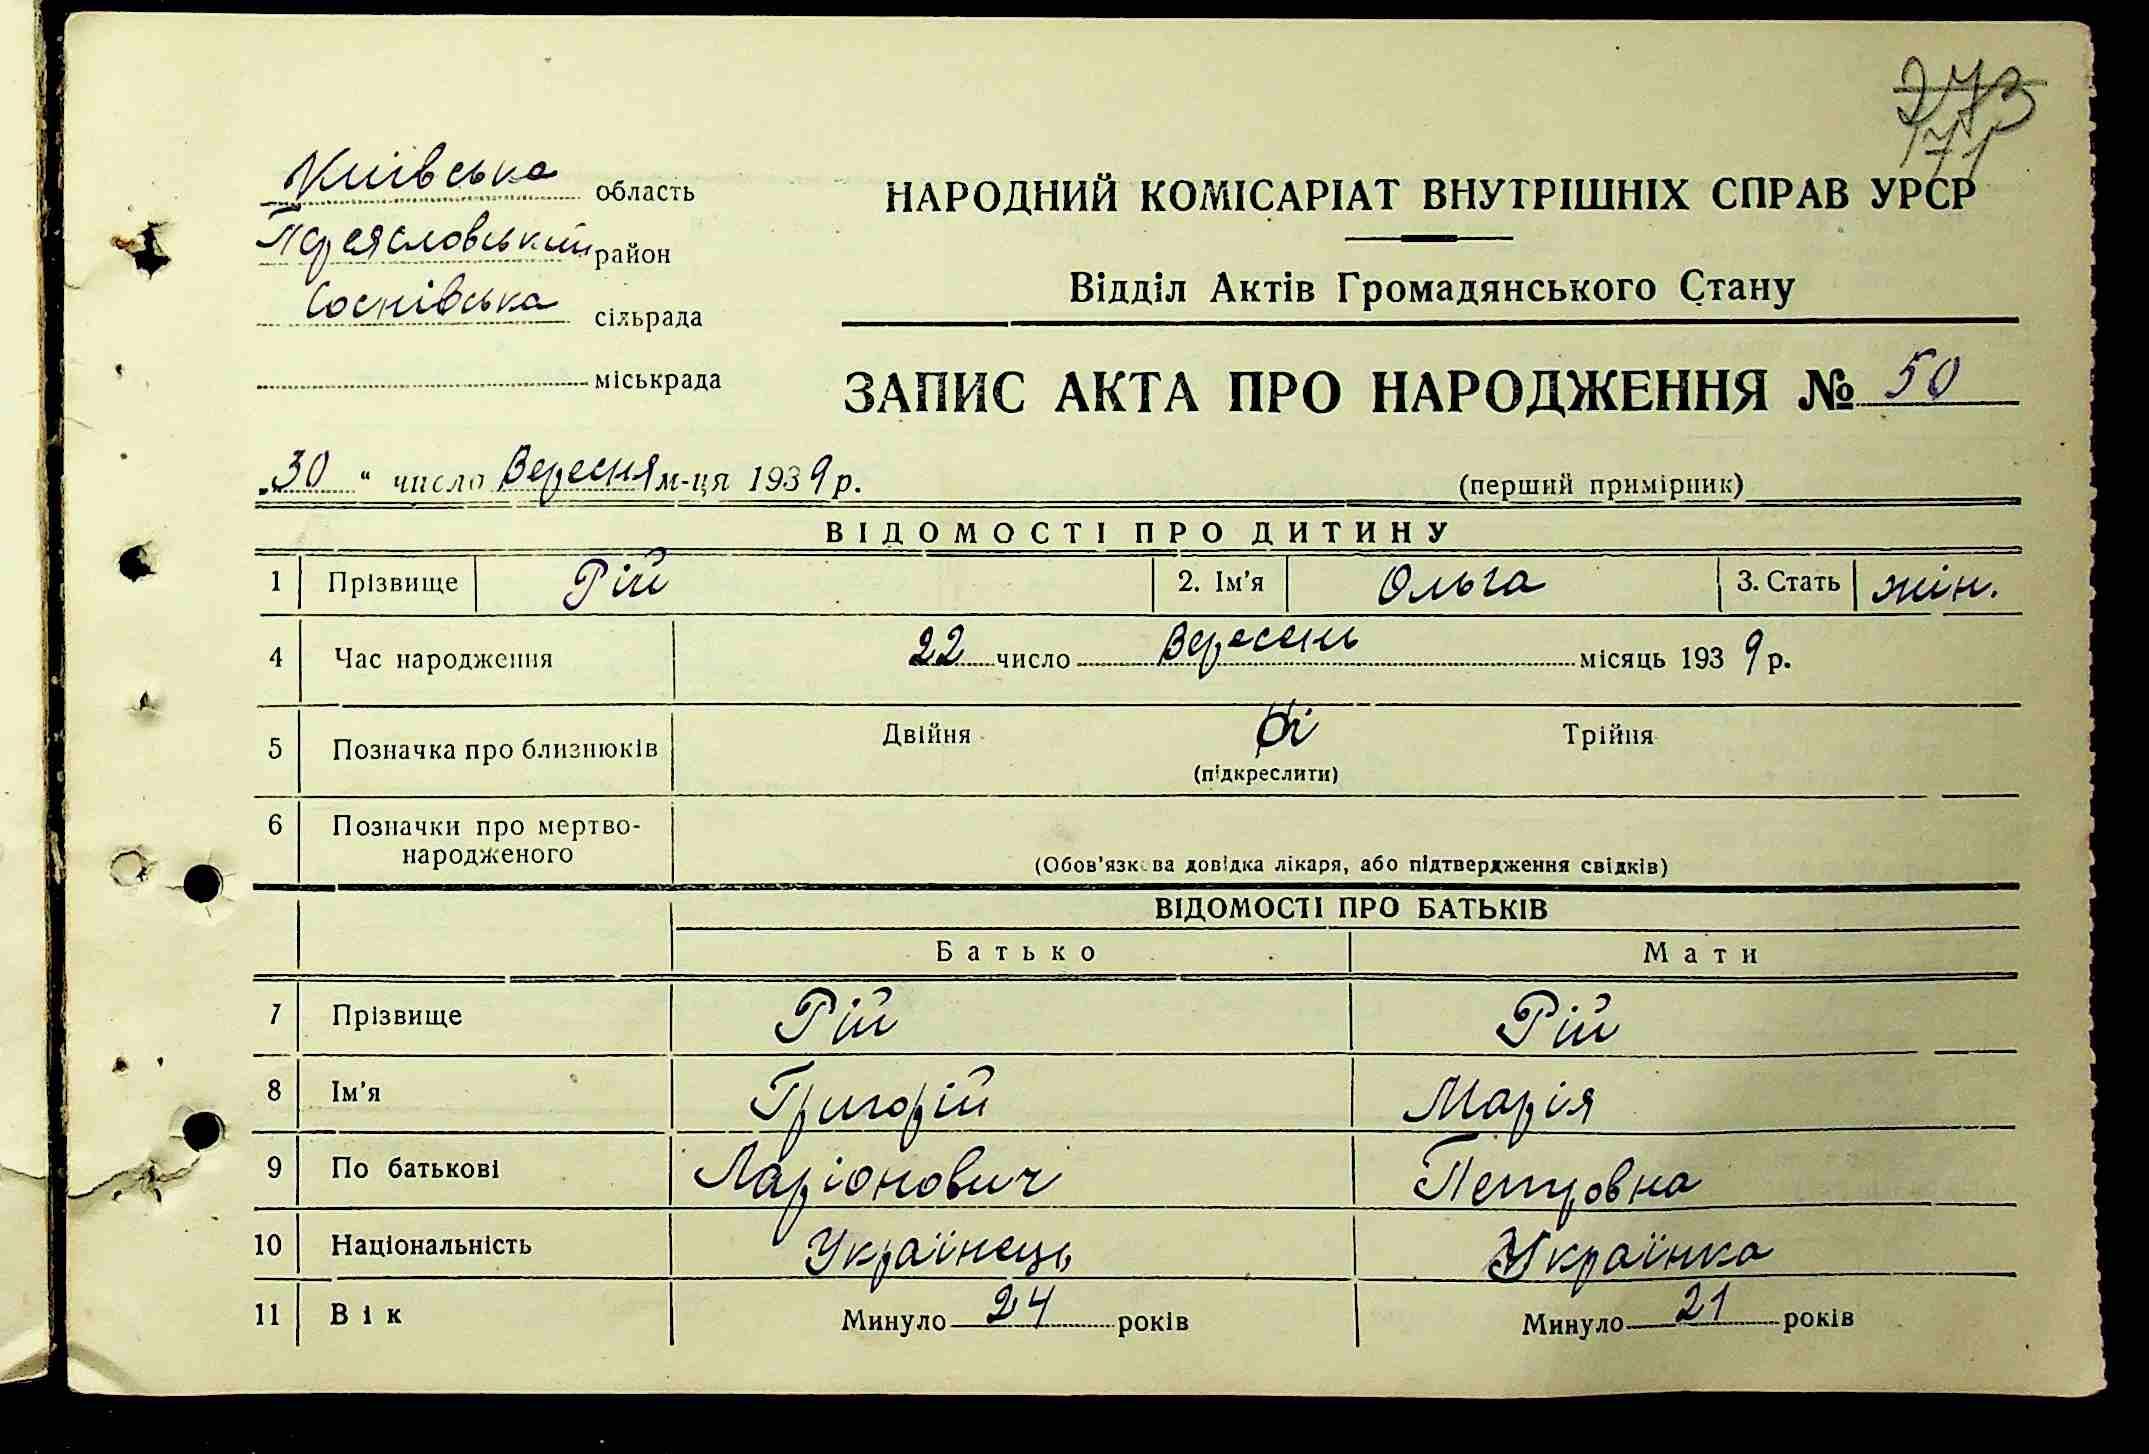 273
171
Київська область
Переясловський район
Соснівська сільрада
міськрада
НАРОДНИЙ КОМІСАРІАТ ВНУТРІШНІХ СПРАВ УРСР
Відділ Актів Громадянського Стану
ЗАПИС АКТА ПРО НАРОДЖЕННЯ № 50
„30“ число Вересня м-ця 1939 р.
(перший примірник)
ВІДОМОСТІ ПРО ДИТИНУ
1 Прізвище Рій 2. Ім'я Ольга 3. Стать жін.
4 Час народження 22 число Вересень місяць 1939 р.
5 Позначка про близнюків Двійня Трійня
(підкреслити)
6 Позначки про мертво-
народженого
(Обов'язкова довідка лікаря, або підтвердження свідків)
ВІДОМОСТІ ПРО БАТЬКІВ
Батько Мати
7 Прізвище Рій Рій
8 Ім'я Григорій Марія
9 По батькові Ларіонович Петровна
10 Національність Українець Українка
11 Вік Минуло 24 років Минуло 21 років